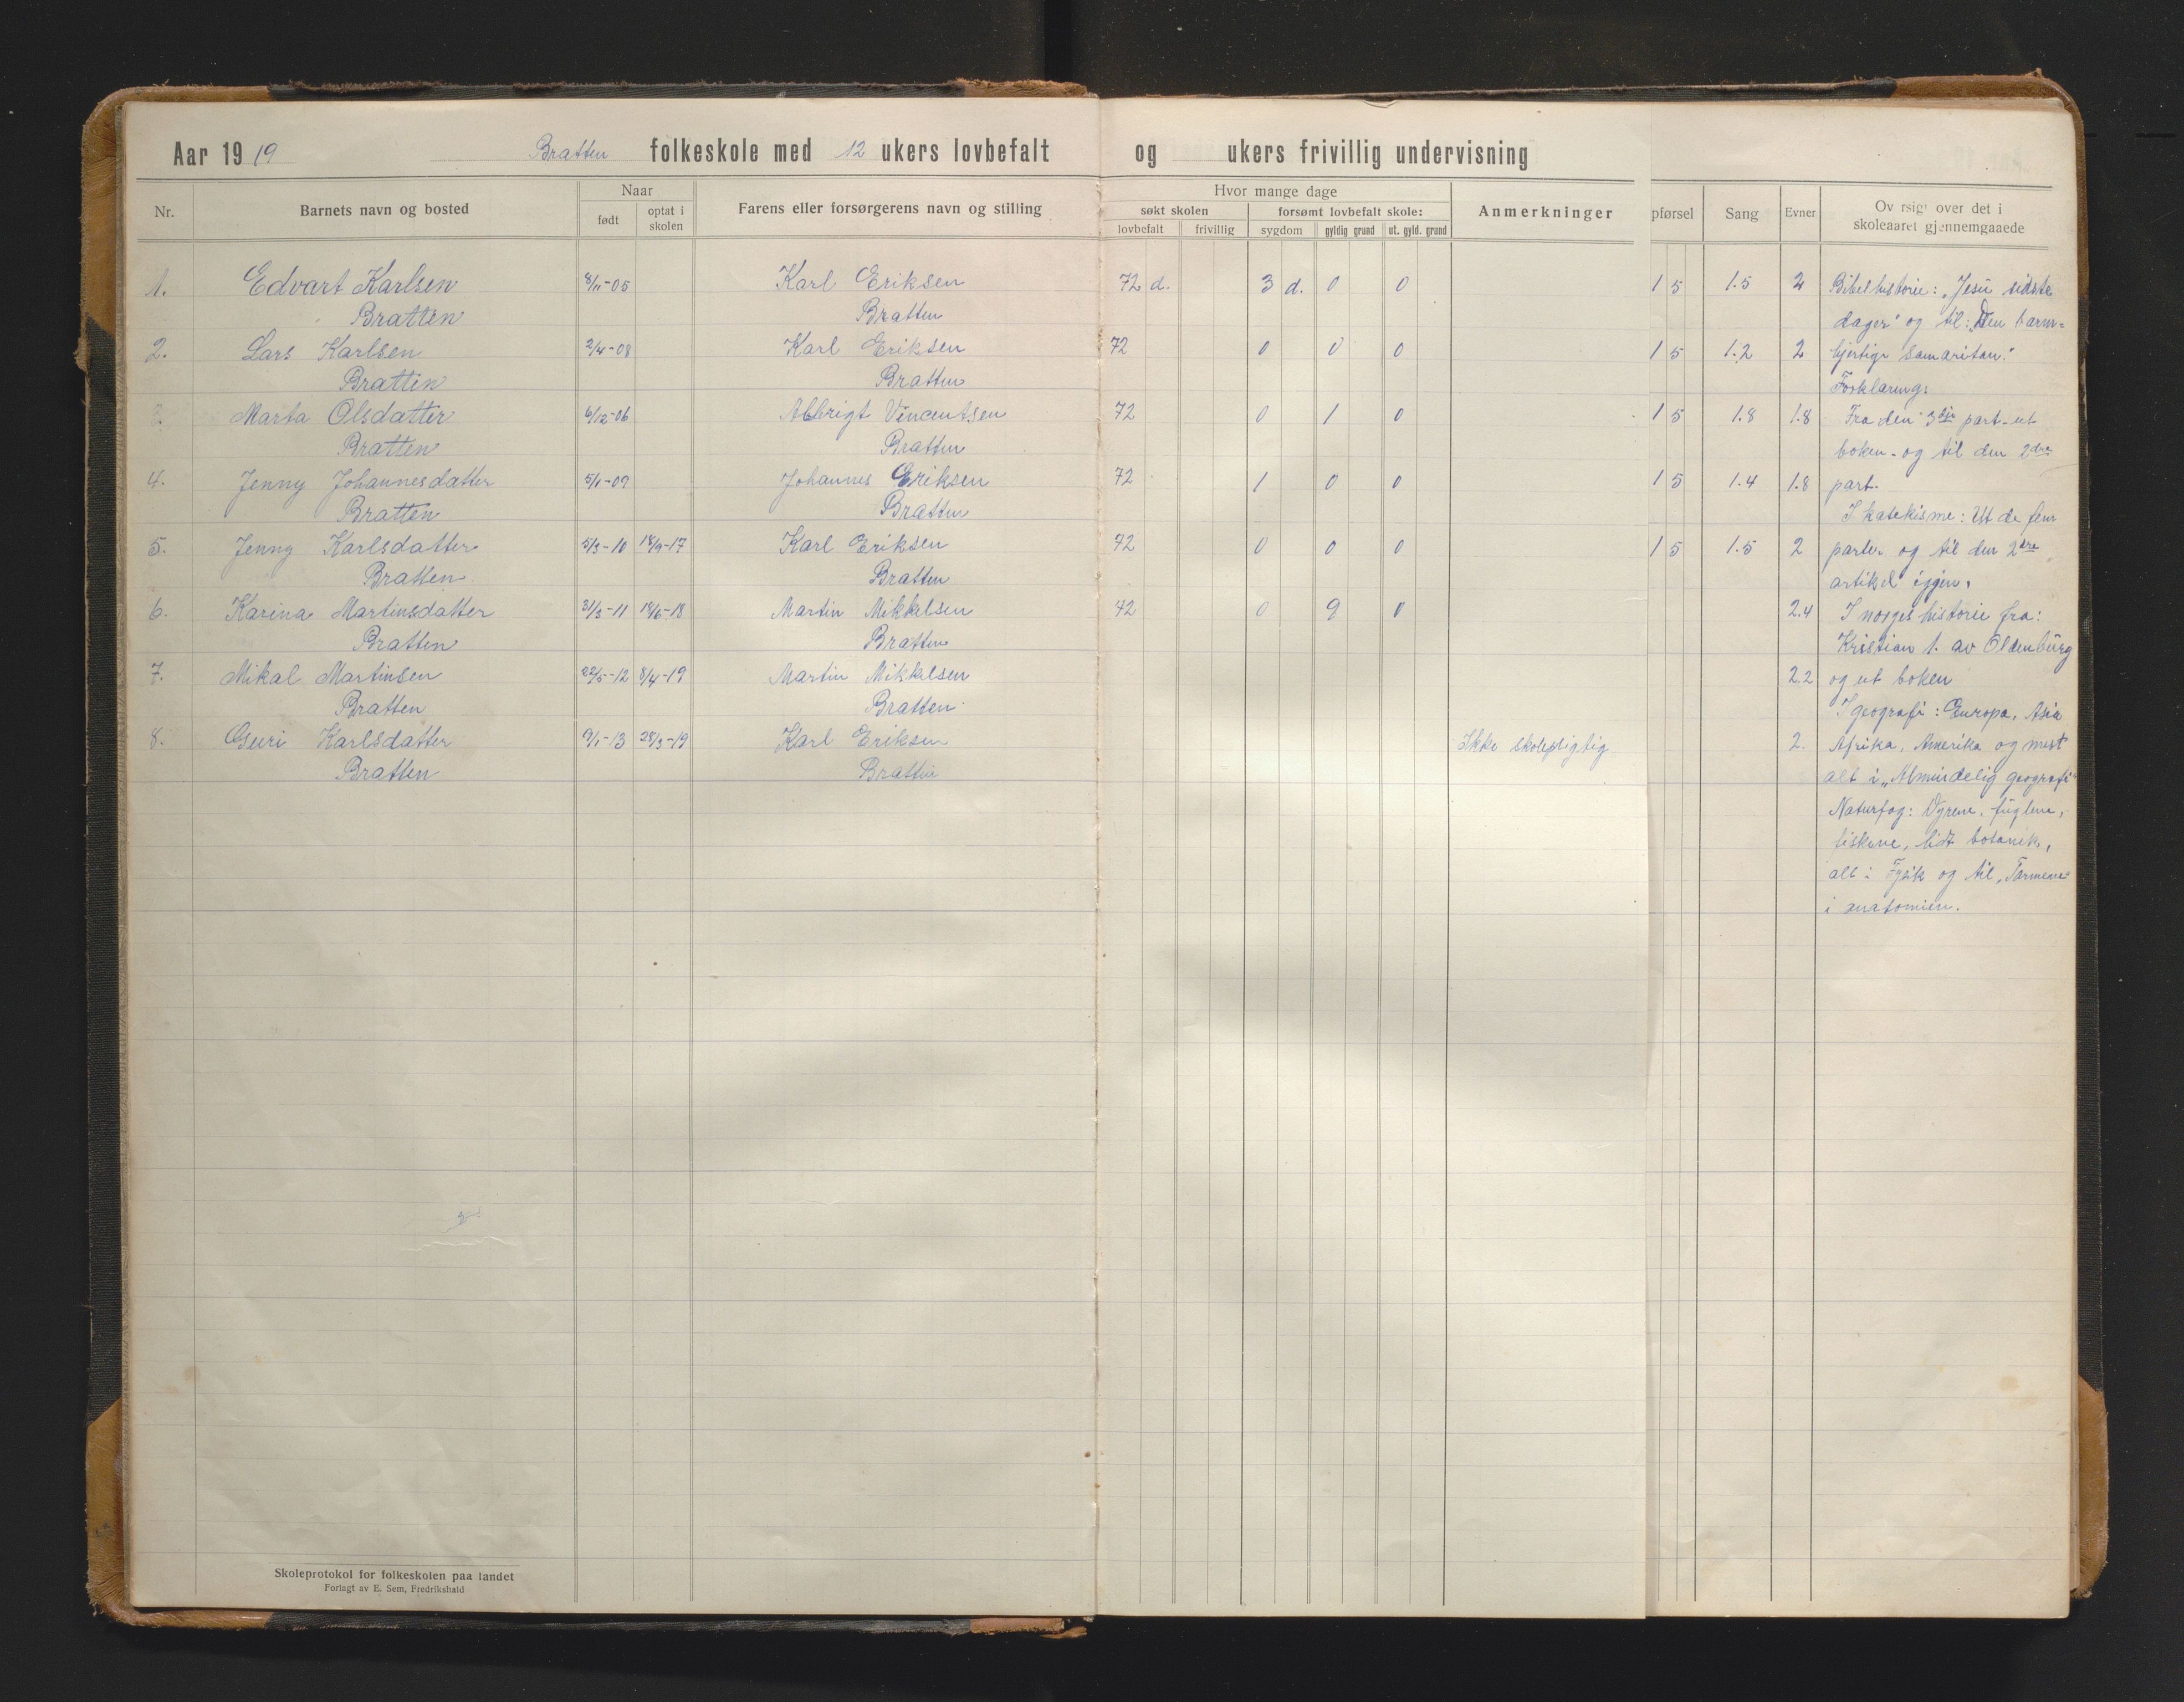 Aar 1919 Bratten folkeskole med 12 ukers lovbefalt og ukers frivillig undervisning
Nr. Barnets navn og bosted Naar født optat i skolen Farens eller forsørgerens navn og stilling Hvor mange dage søkt skolen lovbefalt frivillig forsømt lovbefalt skole: sygdom gyldig grund ut. gyld. grund Anmerkninger pførsel Sang Evner Ov rsigt over det i skoleaaret gjennemgaaede
1. Edvart Karlsen 8/11-05 Karl Eriksen 72 d. 3 d. 0 0 1 5 1.5 2 Bibelhistorie: „Jesu sidste
Bratten Bratten dager" og til: „Den barm-
2. Lars Karlsen 2/4-08 Karl Eriksen 72 0 0 0 1 5 1.2 2 hjertige samaritan."
Bratten Bratten Forklaring:
3. Marta Olsdatter 6/12-06 Albrigt Vincentsen 72 0 1 0 1 5 1.8 1.8 Fra den 3dje part-ut
Bratten Bratten boken-og til den 2dre
4. Jenny Johannesdatter 5/1-09 Johannes Eriksen 72 1 0 0 1 5 1.4 1.8 part.
Bratten Bratten I katekisme: Ut de fem
5. Jenny Karlsdatter 5/3-10 18/9-17 Karl Eriksen 72 0 0 0 1 5 1.5 2 parter og til den 2dre
Bratten Bratten artikel igjen.
6. Karina Martinsdatter 31/3-11 18/6-18 Martin Mikkelsen 42 0 9 0 2.4 I norges historie fra:
Bratten Bratten Kristian 1. av Oldenburg
7. Mikal Martinsen 22/5-12 8/4-19 Martin Mikkelsen 2.2 og ut boken
Bratten Bratten I geografi: Europa, Asia
8. Guri Karlsdatter 9/1-13 28/3-19 Karl Eriksen Ikke skolepligtig 2. Afrika, Amerika og mest
Bratten Bratten alt i „Almindelig geografi"
Naturfag: Dyrene, fuglene,
fiskene, lidt botanik,
alt i Fysik og til „Tarmene"
i anatomien.
Skoleprotokol for folkeskolen paa landet
Forlagt av E. Sem, Fredrikshald